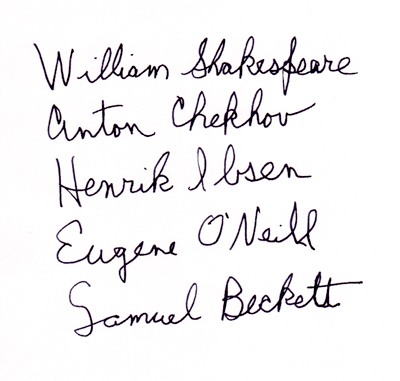 William Shakespeare
Anton Chekhov
Henrik Ibsen
Eugene O'Neill
Samuel Beckett